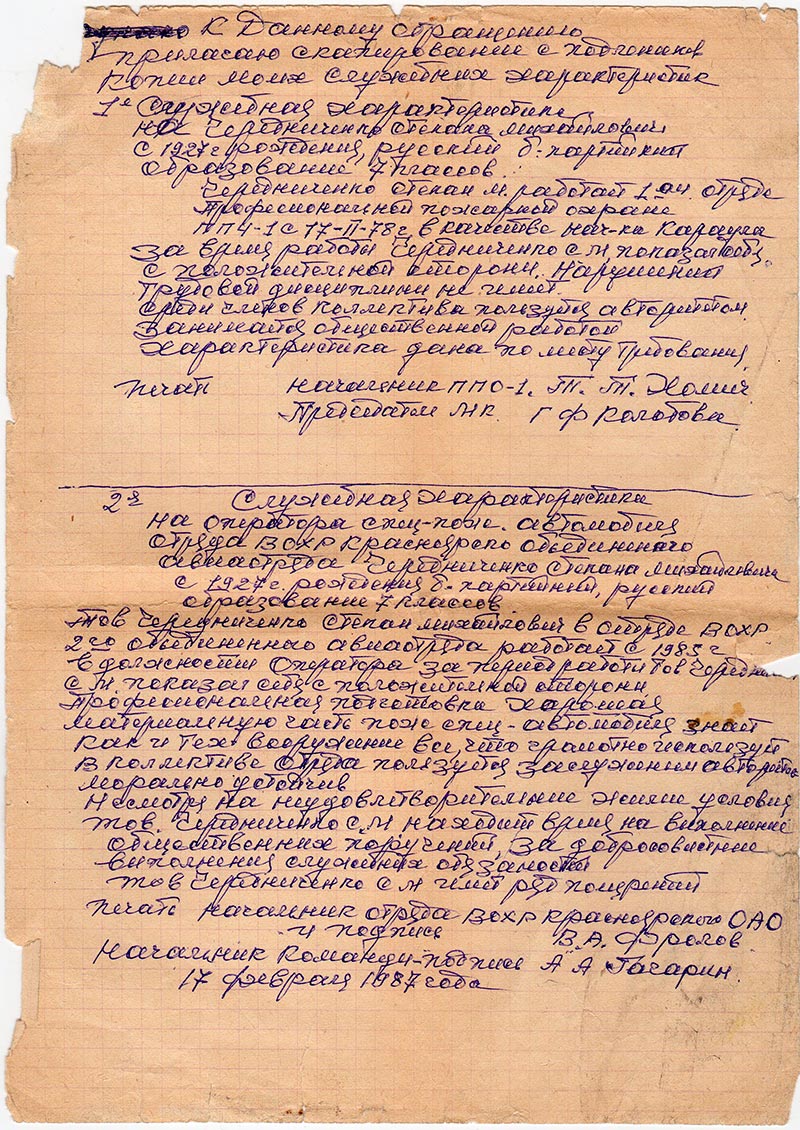 К Данному обращению
прилагаю скапированние с подлоников
копии моих служебних характеристик
1я Служебная характеристика
на Чередниченко Степана Михайлович
с 1927 г рождения, русский б: партийний
образование 7 классов.
Чередниченко Степан М. работает 1ом. отряде
Професиональной пожарной охране
ППЧ-1 с 17-II-78 г, в качестве нач-ка Караула
За время работы Чередниченко С М, показал себя
с положительной стороны. Нарушений
трудовой дисциплини не имеет.
Среди членов коллектива пользуется авторитетом
Занимается общественной работой
Характеристика дана по месту Требования
печать Начальник ППО-1. Т. Т. Хомич
Председатель МК. Г Ф Колотова
2я Служебная характеристика
на оператора спец-пож. автомобиля
отряда ВОХР Красноярского объединеного
авиаотряда Чередниченко Степана Михайловича
с 1927 г. рождения б. партийный, русский
образование 7 классов
Тов Чередниченко Степан Михайлович в отряде ВОХР
2го объединенного авиаотряда работает с 1983 г
в должности Оператора за период работы Тов Чередниченко
С М. показал себя с положительной стороны.
Професиональная подготовка Харошая
материальную часть пож спец-автомобиля знает
как и Тех. вооружание все, что грамотно использует
в коллективе отряда ползуется заслуженим авторитетом
морально устойчив
Несмотря на неудовлетворительние жилие условия
тов. Чередниченко С. М находит время на виполнение
общественних поручений, За добросовистние
виполнения служебних обязаностей
тов Чередниченко С М имеет ряд поощрений
печать Начальник отряда ВОХР Красноярского ОАО
и подпись В. А. Фролов
Начальник команди-подпись А А Гагарин.
17 февраля 1987 года